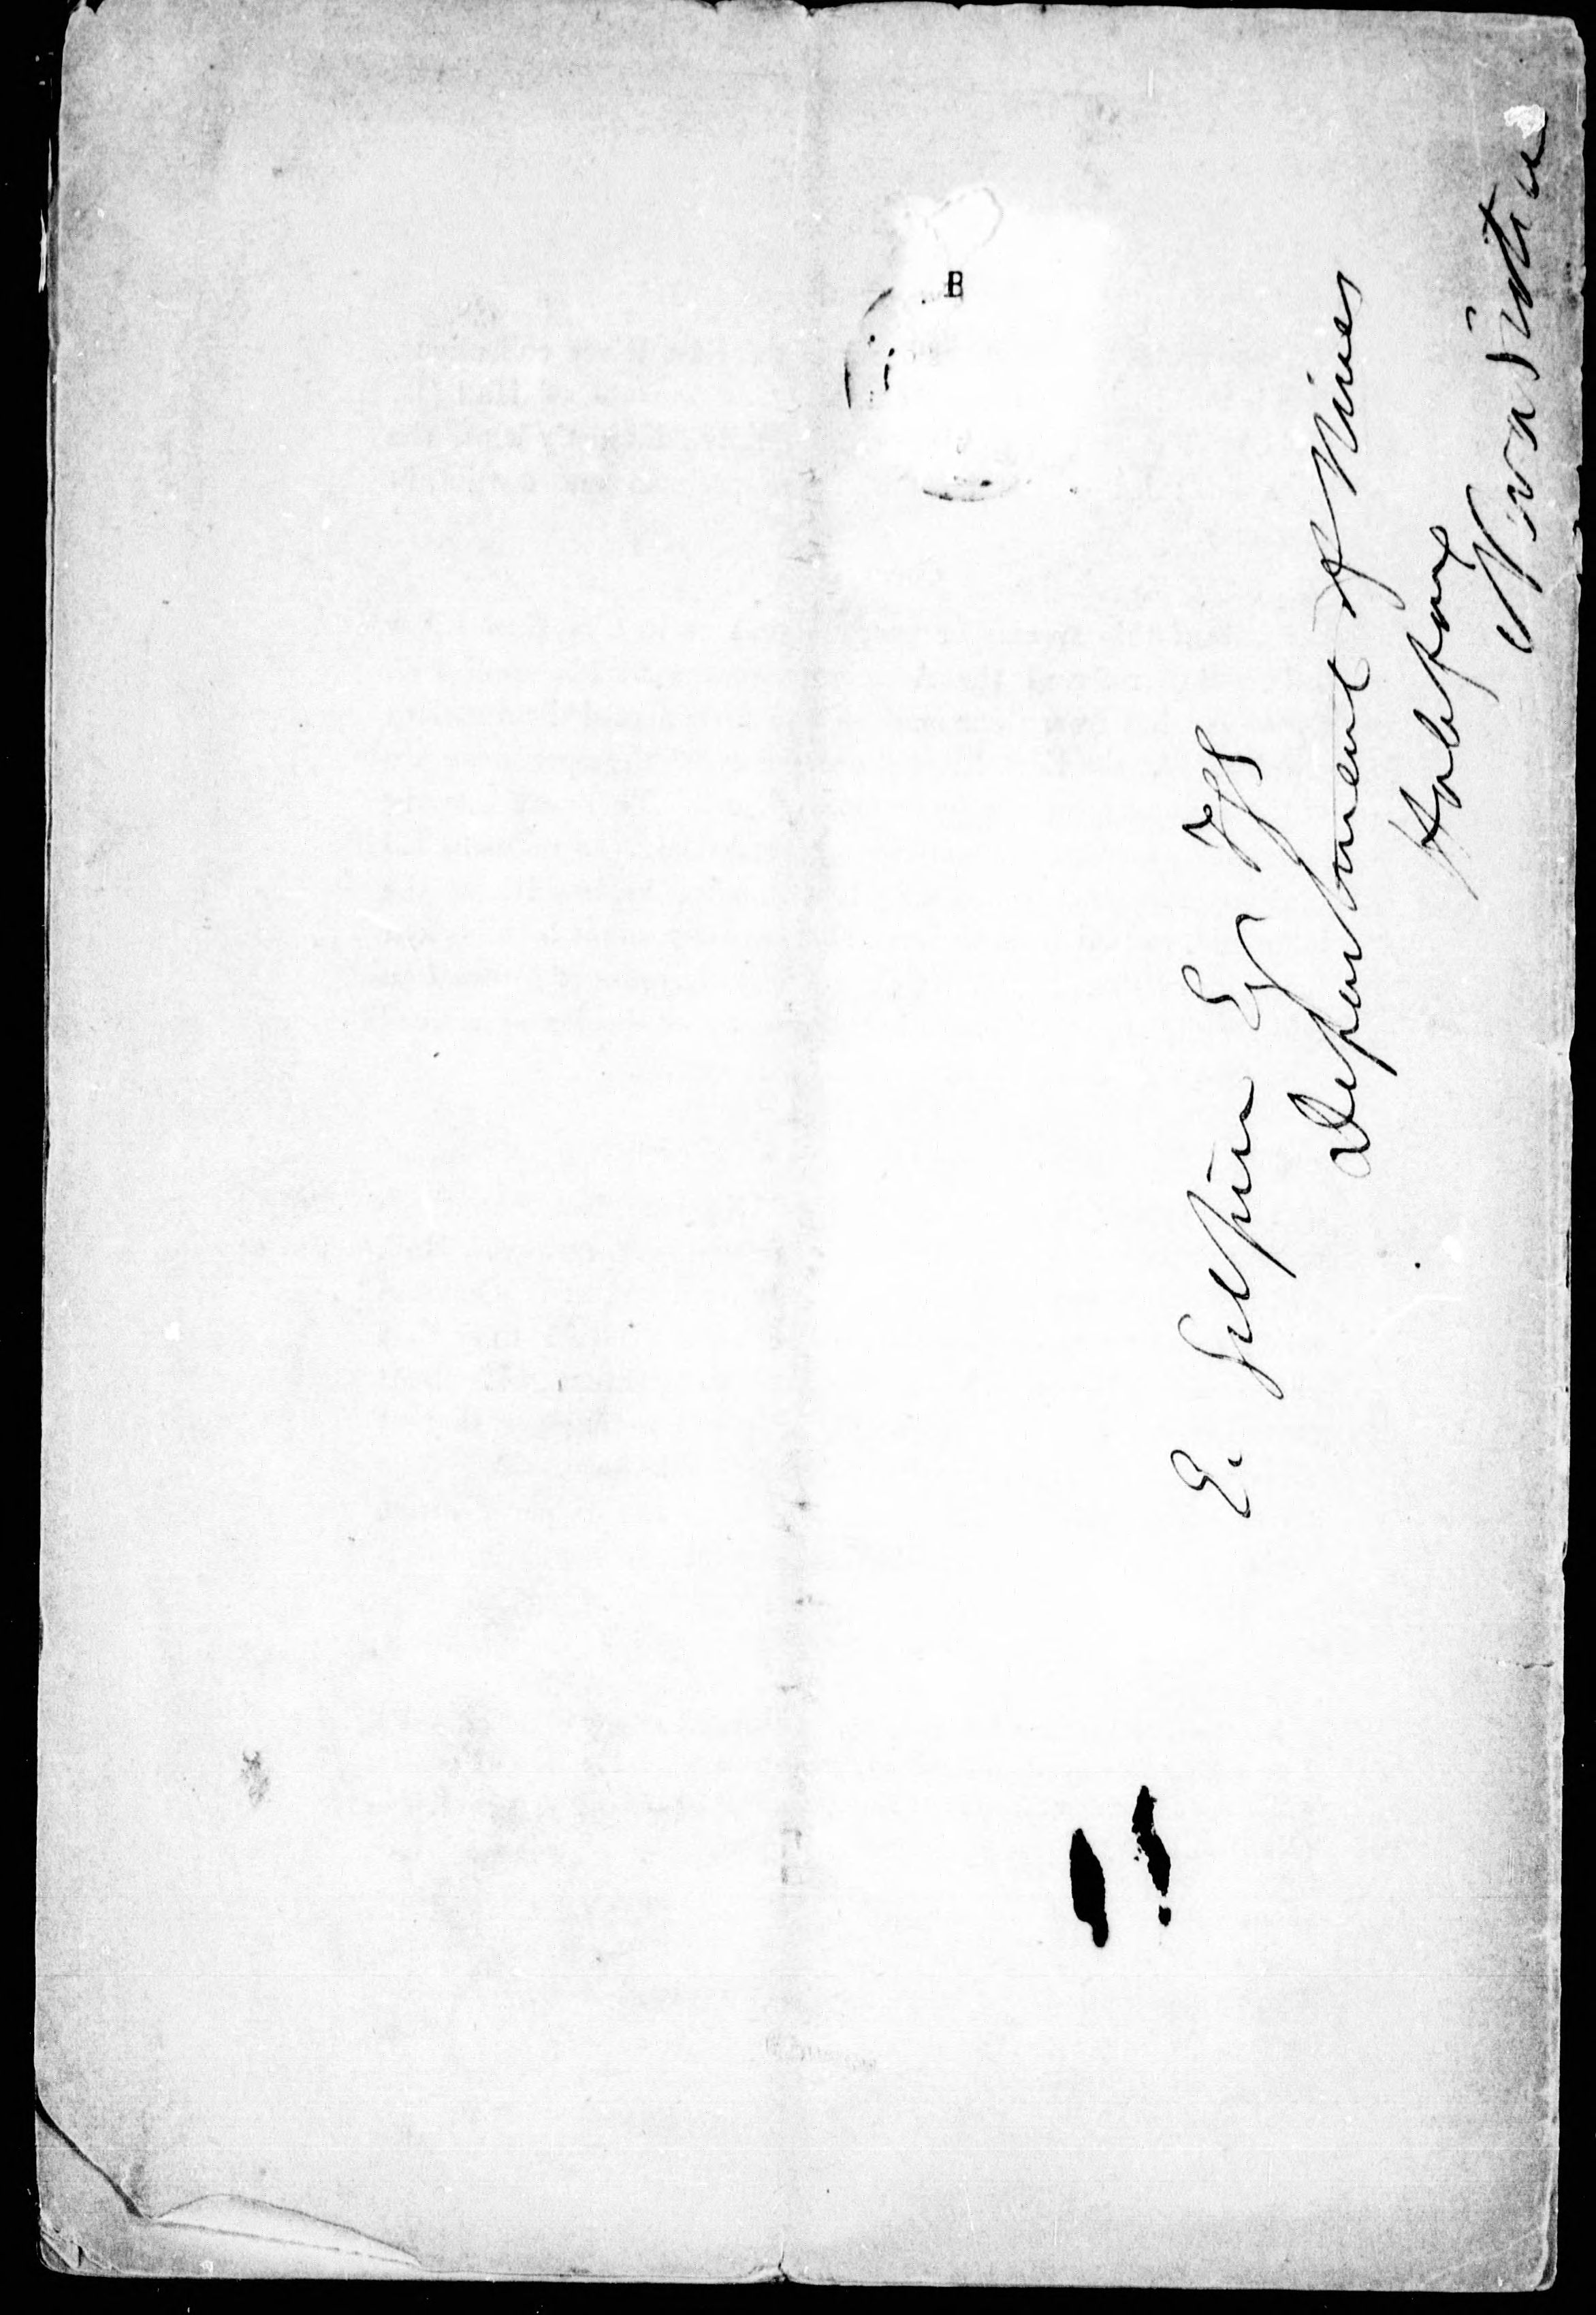 E. Gilpin Esq
Department of Mines
Halifax
Nova Scotia
B